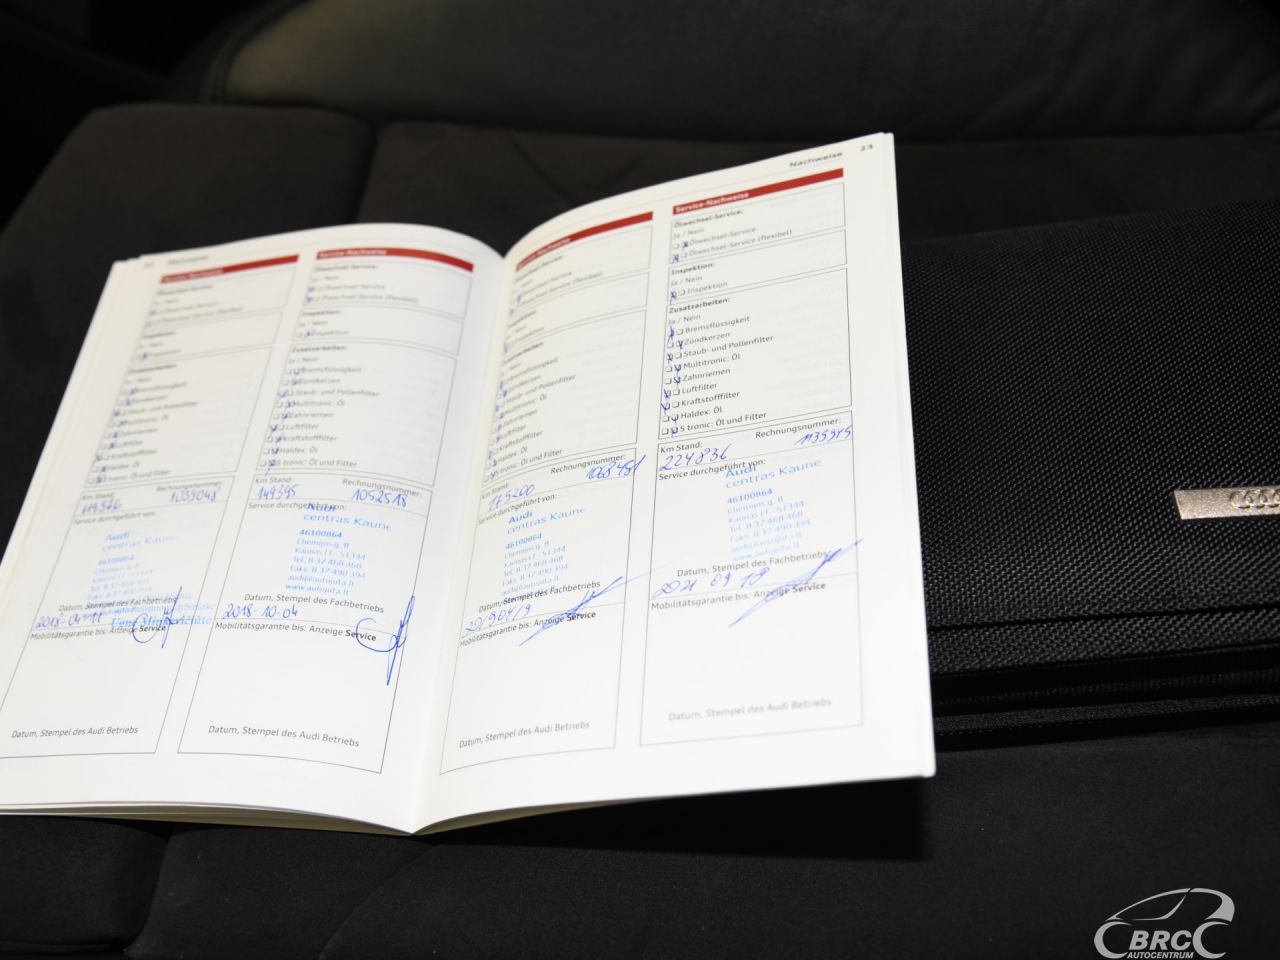 Nachweise
Service-Nachweise
Ölwechsel-Service:
Ja / Nein
Ölwechsel-Service
Ölwechsel-Service (flexibel)
Inspektion:
Ja / Nein
Inspektion
Zusatzarbeiten:
Ja / Nein
Bremsflüssigkeit
Zündkerzen
Staub- und Pollenfilter
Multitronic: Öl
Zahnriemen
Luftfilter
Kraftstofffilter
Haldex: Öl
S tronic: Öl und Filter
Km Stand: Rechnungsnummer:
1039048
Service durchgeführt von:
Audi
centras Kaune
46100864
Datum, Stempel des Fachbetriebs
2018-04-11
Mobilitätsgarantie bis: Anzeige Service
Datum, Stempel des Audi Betriebs
Service-Nachweise
Ölwechsel-Service:
Ja / Nein
Ölwechsel-Service
Ölwechsel-Service (flexibel)
Inspektion:
Ja / Nein
Inspektion
Zusatzarbeiten:
Ja / Nein
Bremsflüssigkeit
Zündkerzen
Staub- und Pollenfilter
Multitronic: Öl
Zahnriemen
Luftfilter
Kraftstofffilter
Haldex: Öl
S tronic: Öl und Filter
Km Stand: Rechnungsnummer:
149395 1052518
Service durchgeführt von:
Audi
centras Kaune
46100864
Chemijos g. 8
Kaunas LT - 51344
Tel. 8 37 468 468
Faks. 8 37 490 394
audi@autojuta.lt
www.autojuta.lt
Datum, Stempel des Fachbetriebs
2018-10-04
Mobilitätsgarantie bis: Anzeige Service
Datum, Stempel des Audi Betriebs
Service-Nachweise
Ölwechsel-Service:
Ja / Nein
Ölwechsel-Service
Ölwechsel-Service (flexibel)
Inspektion:
Ja / Nein
Inspektion
Zusatzarbeiten:
Ja / Nein
Bremsflüssigkeit
Zündkerzen
Staub- und Pollenfilter
Multitronic: Öl
Zahnriemen
Luftfilter
Kraftstofffilter
Haldex: Öl
S tronic: Öl und Filter
Km Stand: Rechnungsnummer:
1063451
Service durchgeführt von:
Audi
centras Kaune
46100864
Chemijos g. 8
Kaunas LT - 51344
Tel. 8 37 468 468
Faks. 8 37 490 394
audi@autojuta.lt
Datum, Stempel des Fachbetriebs
Mobilitätsgarantie bis: Anzeige Service
Datum, Stempel des Audi Betriebs
Nachweise 23
Service-Nachweise
Ölwechsel-Service:
Ja / Nein
Ölwechsel-Service
Ölwechsel-Service (flexibel)
Inspektion:
Ja / Nein
Inspektion
Zusatzarbeiten:
Ja / Nein
Bremsflüssigkeit
Zündkerzen
Staub- und Pollenfilter
Multitronic: Öl
Zahnriemen
Luftfilter
Kraftstofffilter
Haldex: Öl
S tronic: Öl und Filter
Km Stand: Rechnungsnummer:
224836
Service durchgeführt von:
Audi
centras Kaune
46100864
Chemijos g. 8
Kaunas LT - 51344
Tel. 8 37 468 468
Faks. 8 37 490 394
audi@autojuta.lt
www.autojuta.lt
Datum, Stempel des Fachbetriebs
2021 09
Mobilitätsgarantie bis: Anzeige Service
Datum, Stempel des Audi Betriebs
BRC
AUTOCENTRUM